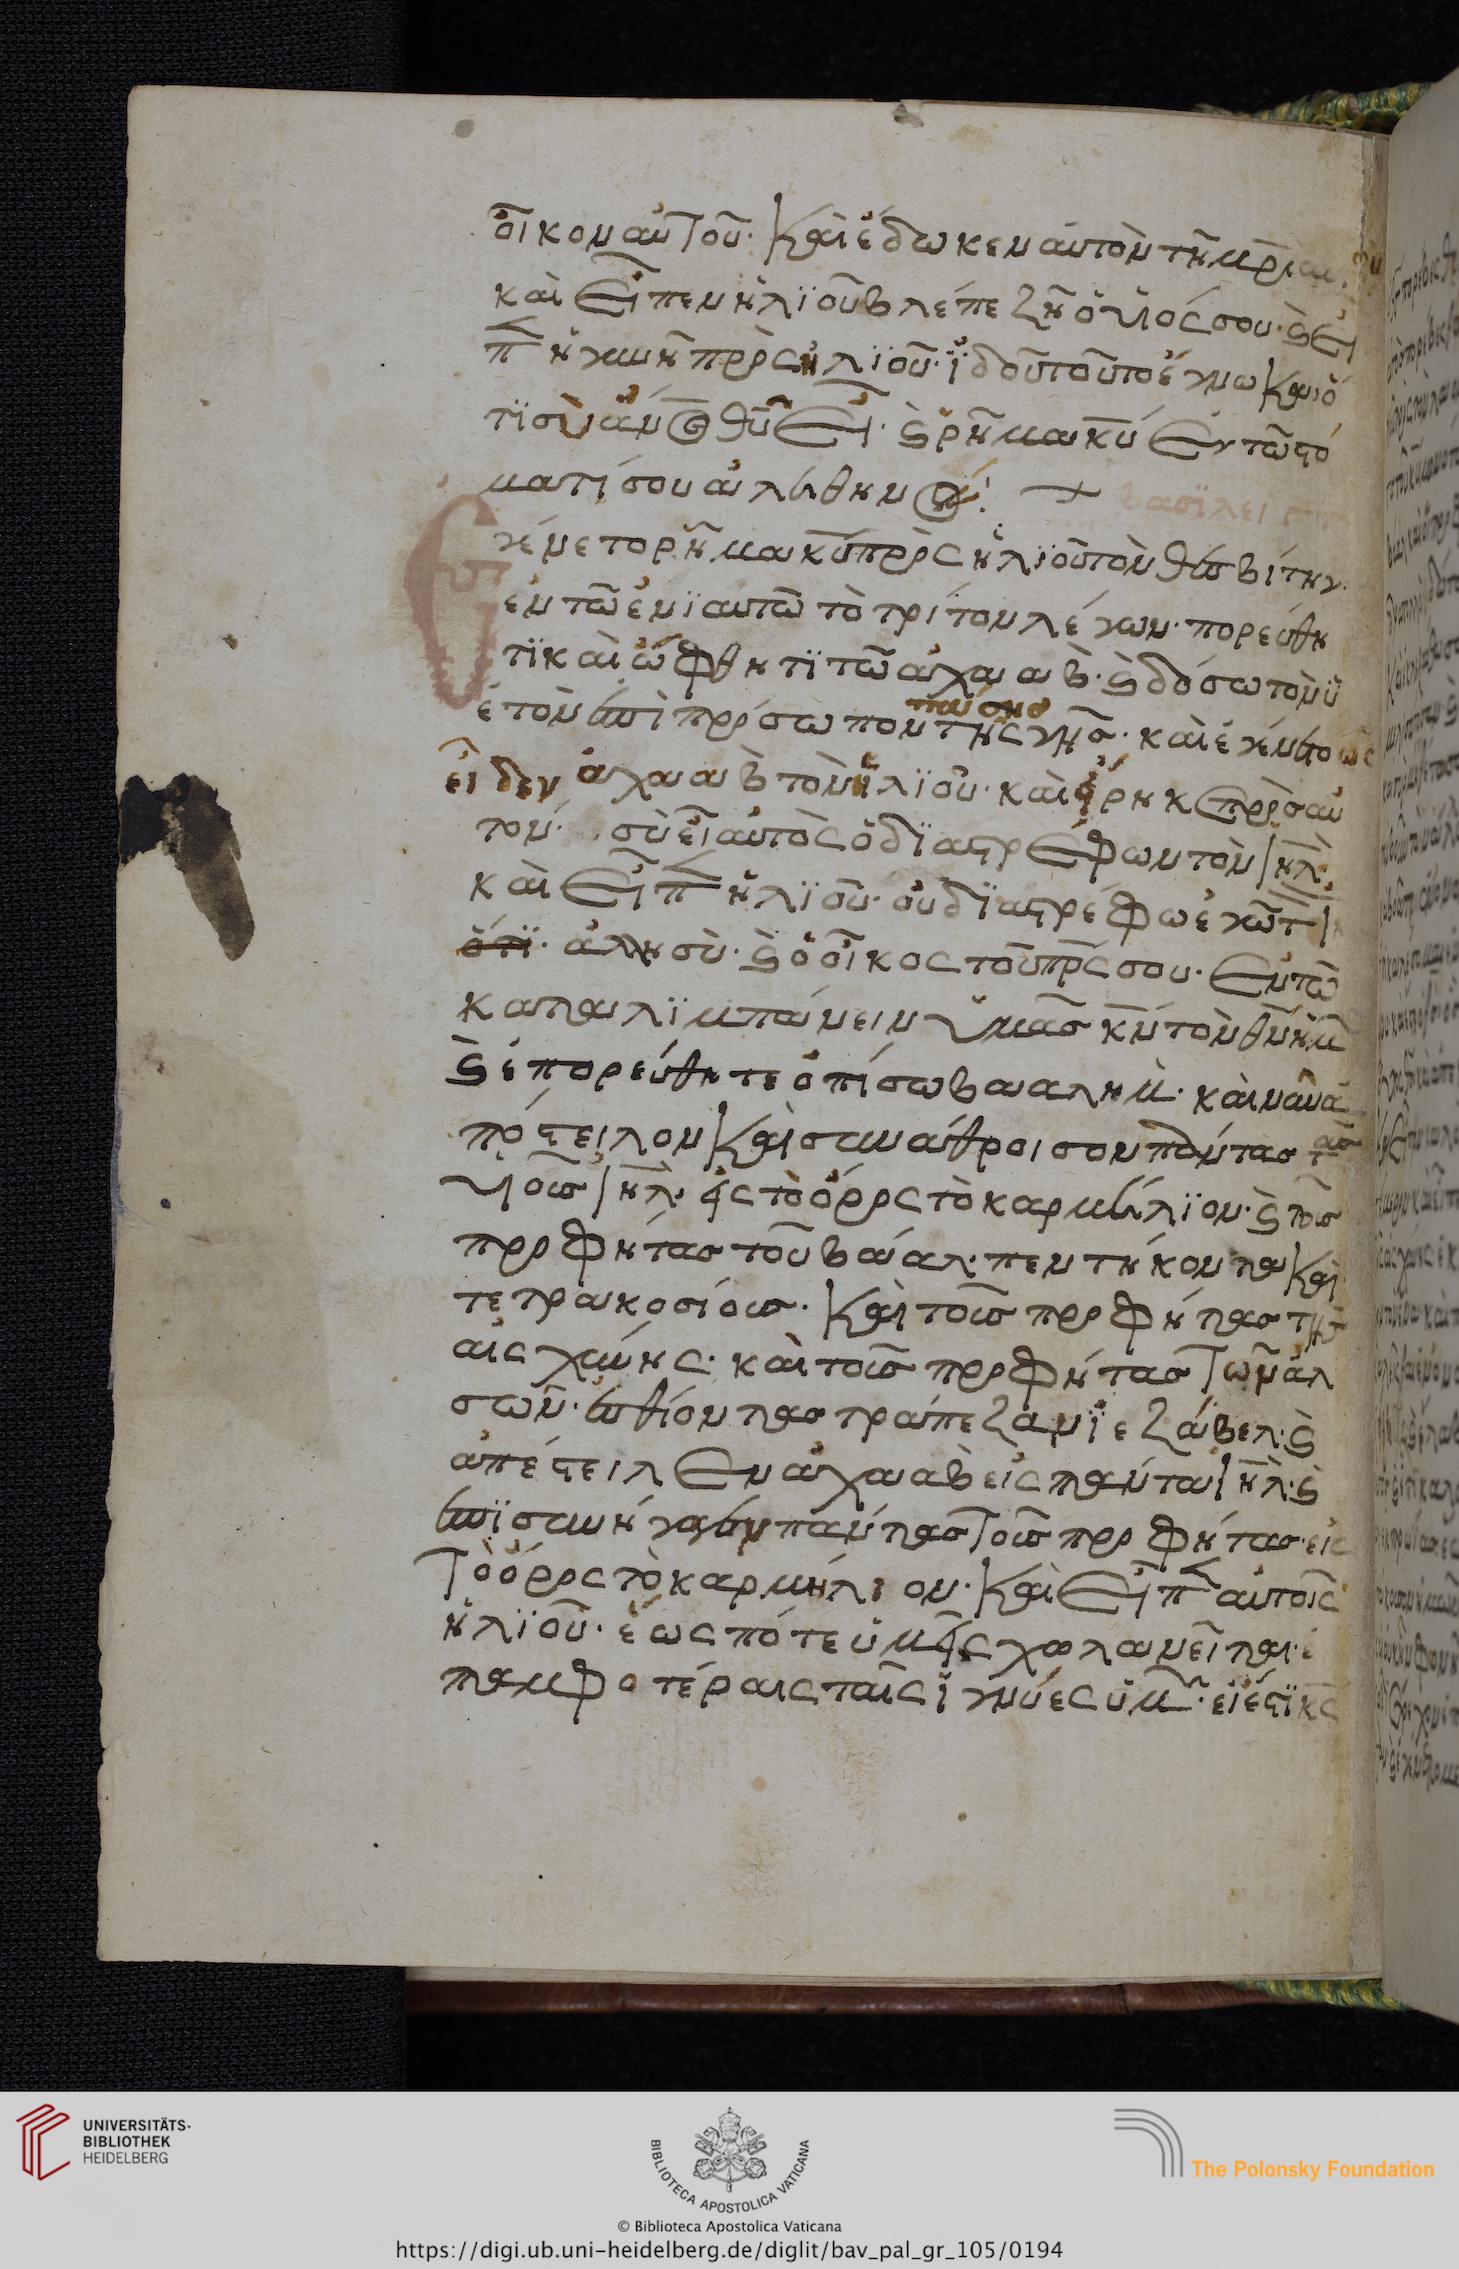 οἶκον αὐτοῦ· καὶ ἔδωκεν αὐτὸν τῆ μρὶ αὐτοῦ
καὶ εἶπεν ἠλϊοῦ βλέπε ζῆ ὁ υἱός σου· καὶ εἶ
π ἡ γυνὴ πρὸς ἠλϊοῦ· ἰδοῦ τοῦτο ἔγνω καὶ ὅ
τϊ σὺ ἄνος θῦ εἶ· καὶ ρῆμα κῦ ἐν τῶ στό
ματί σου ἀληθηνόν:
βασϊλει
Ἐγένετο ρῆμα κῦ πρὸς ἠλϊοῦ τὸν θεσβίτην·
ἐν τῶ ἐνϊαυτῶ τὸ τρίτον λέγων· πορεύθη
τϊ καὶ ὤφθητϊ τῶ ἀχαάβ· καὶ δόσω τὸν ὑ
ετὸν ἐπὶ πρόσωπον πάσης τῆς γῆς· καὶ ἐγένετο ὡς
εἶδεν ἀχαὰβ τὸν ἠλϊοῦ· καὶ εἴρηκε πρὸς αυ
τον· σὺ εἶ αὐτὸς ὁ δϊαστρέφων τὸν ιηλ·
καὶ εἶπ ἠλϊοῦ· οὐ δϊαστρέφω ἐγὼ τ ι
ὅτϊ· ἀλλη σὺ· καὶ ὁ οἶκος τοῦ πρς σου· ἐν τῶ
καταλϊμπάνειν ὑμᾶς κν τὸν θν ἡμ
καὶ ἐπορεύθητε ὀπίσω βααλημ· καὶ νῦν ἀ
πόστειλον καὶ συνάθροισον πάντας τοὺς
υἱοὺς ιηλ· εἰς τὸ ὄρος τὸ καρμήλϊον· καὶ τοὺς
προφήτας τοῦ βάαλ· πεντήκοντα καὶ
τετρακοσίους· καὶ τοὺς προφήτας τῆς
αἰσχύνης· καὶ τοὺς προφήτας τῶν ἀλ
σων· ἐσθίοντας τράπεζαν ϊεζάβελ· καὶ
ἀπέστειλεν ἀχαὰβ εἰς πάντα ιηλ· καὶ
ἐπϊσυνήγαγεν πάντας τοὺς προφήτας· εἰς
τὸ ὄρος τὸ καρμήλιον· καὶ εἶπ αὐτοῖς
ἠλϊοῦ· ἕως πότε ὑμεῖς χωλανεῖται· ἐ
π ἀμφοτέραις ταῖς ἰγνύες ὑμ· εἰ ἔστϊ κς
UNIVERSITÄTS-
BIBLIOTHEK
HEIDELBERG
BIBLIOTECA APOSTOLICA VATICANA
The Polonsky Foundation
© Biblioteca Apostolica Vaticana
https://digi.ub.uni-heidelberg.de/diglit/bav_pal_gr_105/0194